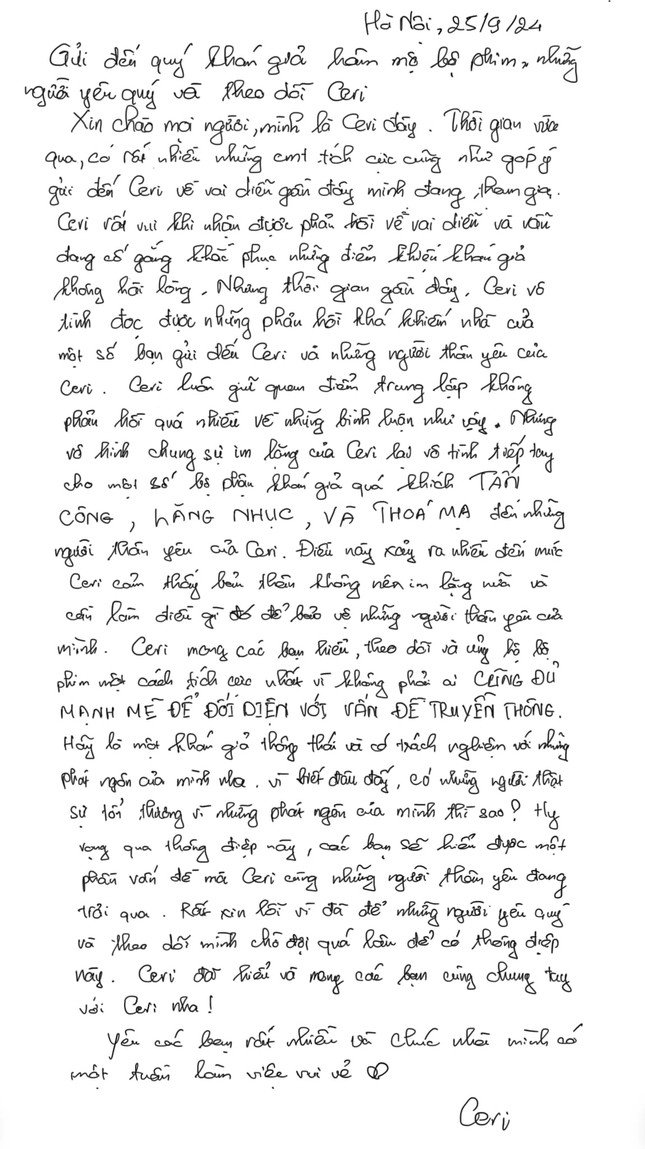 Hà Nội, 25/9/24
Gửi đến quý khán giả hâm mộ bộ phim, những
người yêu quý và theo dõi Ceri
Xin chào mọi người, mình là Ceri đây. Thời gian vừa
qua, có rất nhiều những cmt tích cực cũng như góp ý
gửi đến Ceri về vai diễn gần đây mình đang tham gia.
Ceri rất vui khi nhận được phản hồi về vai diễn và vẫn
đang cố gắng khắc phục những điểm khiến khán giả
không hài lòng. Nhưng thời gian gần đây, Ceri vô
tình đọc được những phản hồi khá khiếm nhã của
một số bạn gửi đến Ceri và những người thân yêu của
Ceri. Ceri luôn giữ quan điểm trung lập không
phản hồi quá nhiều về những bình luận như vậy. Nhưng
vô hình chung sự im lặng của Ceri lại vô tình tiếp tay
cho một số bộ phận khán giả quá khích TẤN
CÔNG, LĂNG NHỤC, VÀ THOÁ MẠ đến những
người thân yêu của Ceri. Điều này xảy ra nhiều đến mức
Ceri cảm thấy bản thân không nên im lặng nữa và
cần làm điều gì đó để bảo vệ những người thân yêu của
mình. Ceri mong các bạn hiểu, theo dõi và ủng hộ bộ
phim một cách tích cực nhất vì không phải ai CŨNG ĐỦ
MẠNH MẼ ĐỂ ĐỐI DIỆN VỚI VẤN ĐỀ TRUYỀN THÔNG.
Hãy là một khán giả thông thái và có trách nghiệm với những
phát ngôn của mình nha. vì biết đâu đấy, có những người thật
sự tổn thương vì những phát ngôn của mình thì sao? Hy
vọng qua thông điệp này, các bạn sẽ hiểu được một
phần vấn đề mà Ceri cùng những người thân yêu đang
trải qua. Rất xin lỗi vì đã để những người yêu quý
và theo dõi mình chờ đợi quá lâu để có thông điệp
này. Ceri đã hiểu và mong các bạn cùng chung tay
với Ceri nha!
Yêu các bạn rất nhiều và chúc nhà mình có
một tuần làm việc vui vẻ
Ceri